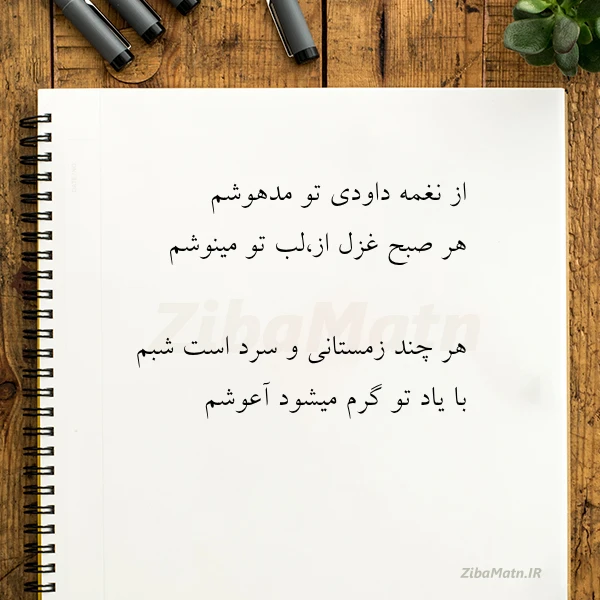 از نغمه داودی تو مدهوشم
هر صبح غزل از،لب تو مینوشم
هر چند زمستانی و سرد است شبم
با یاد تو گرم میشود آعوشم
ZibaMatn
ZibaMatn.IR